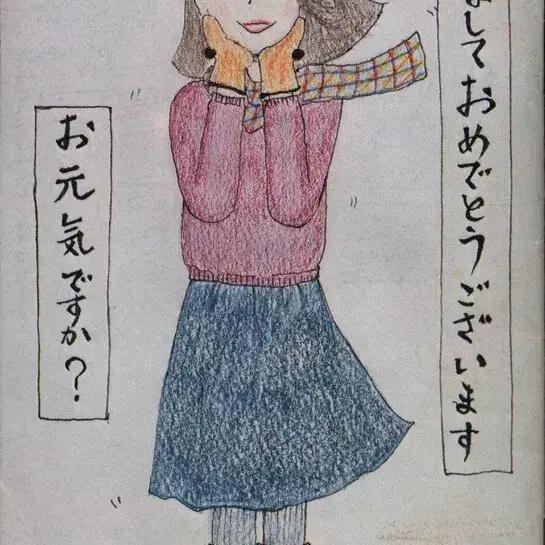 ましておめでとうございます
お元気ですか？